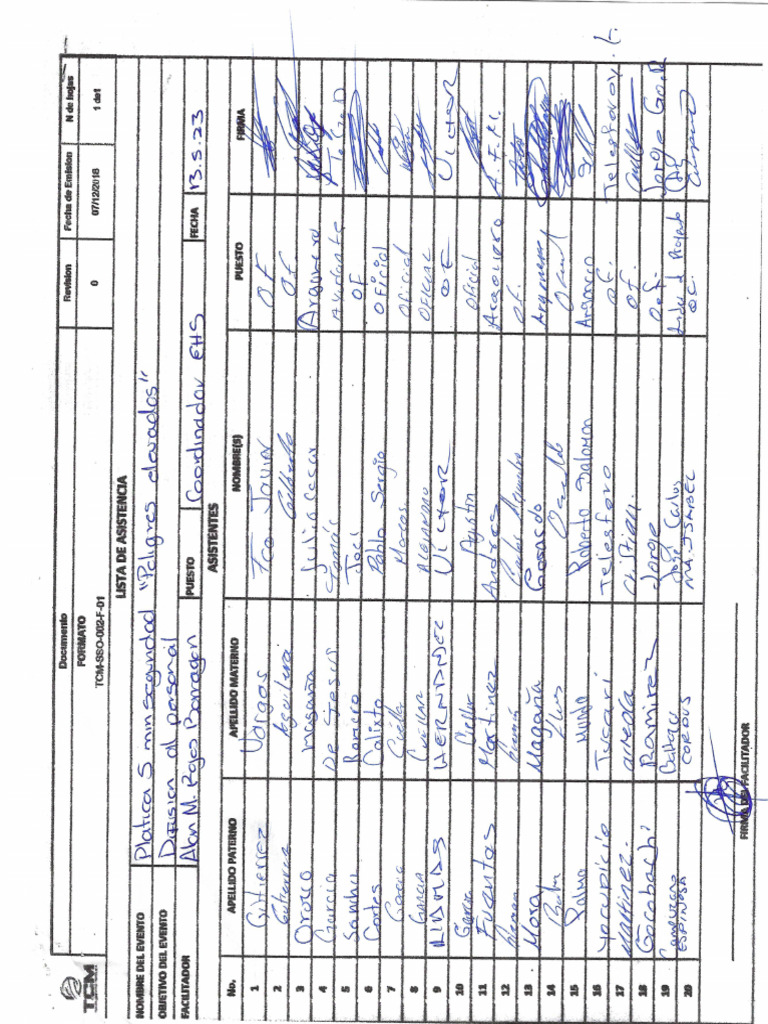 TCM
Documento
FORMATO
TCM-SSO-002-F-01
Revision
0
Fecha de Emision
07/12/2018
N de hojas
1 de1
LISTA DE ASISTENCIA
NOMBRE DEL EVENTO Platicas 5 min seguridad "Peligros elevados"
OBJETIVO DEL EVENTO Difusion al personal
FACILITADOR Alan M. Rojas Barragan PUESTO Coordinador EHS FECHA 13.5.23
ASISTENTES
No. APELLIDO PATERNO APELLIDO MATERNO NOMBRE(S) PUESTO FIRMA
1 Gutierrez Vargas Fco. Javier OF
2 Gutierrez Aguilera OF
3 Orozco magaña Julio Cesar
4 Garcia De Jesus Tomás Ayudante
5 Sanchez Romero Joel OF
6 Cortes Calixto Pablo Sergio Oficial
7 Garcia Cuellar Marcos Oficial
8 Garcia Cuellar Alejandro Oficial
9 HERNANDEZ Victor OF Victor
10 Garcia Cuellar Agustin Oficial
11 Fuentes Martinez Andres
12 Carlos Alejandro OF.
13 Mora Magaña Gerardo
14 Luis Osvaldo Oficial
15 Palma Roberto Salomon
16 Yocupicio Tucari Telesforo OF. Telesforo Y. t.
17 Martinez. arreola cristian. OF.
18 Cocobachi Ramirez Jorge Jorge Co.R
19 José Carlos
20 ESPINOSA CORPUS MA. ISABEL OF.
FIRMA DEL FACILITADOR